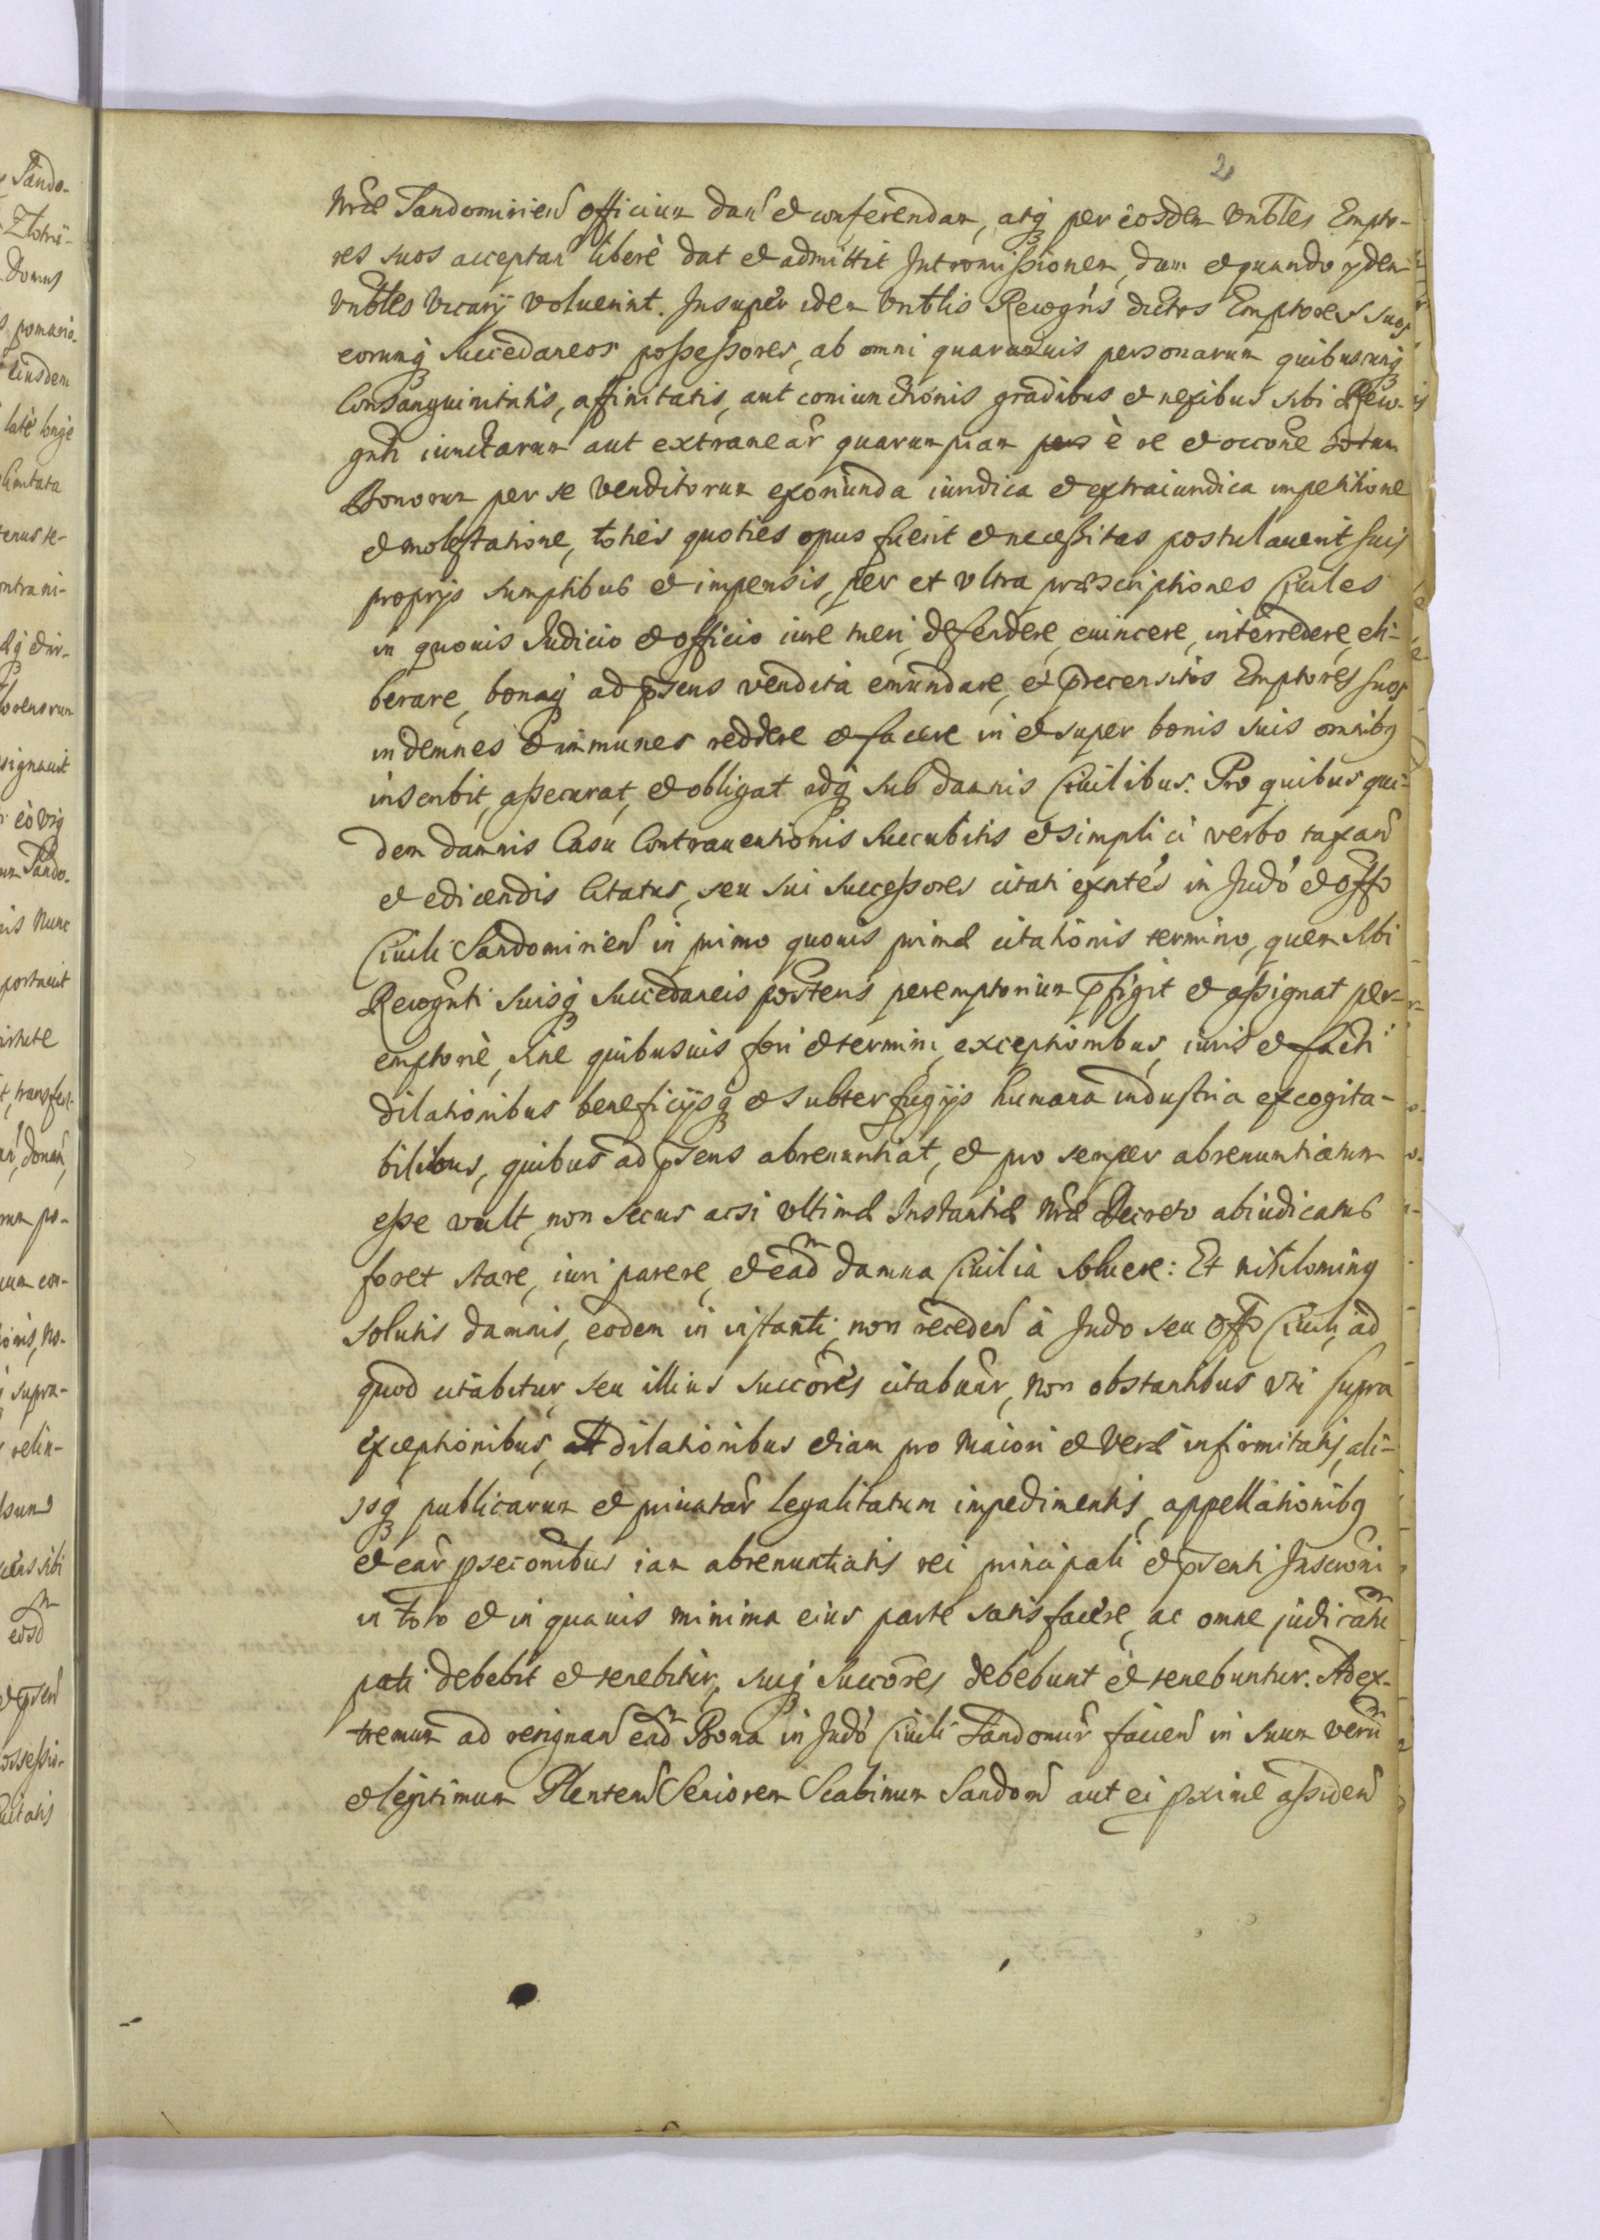 2
Nræ Sandomirien officium dan et conferendam, atq per eosdem Vnbles Empto-
res suos acceptan liberè dat et admittit Intromissionem, dum et quando ydem
Vnbles Vicarij voluerint. Insuper idem Vnblis Recogñs dictos Emptores suos
eorumq succedaneos possessores, ab omni quarumuis personarum quibuscunq
Consanguinitatis, affinitatis, aut coniunctionis gradibus et nexibus sibi Reco-
gnti iunctarum aut extranear quarumpiam è re et occone
Bonorum per se venditorum exoriunda iuridica et extraiuridica impetitione
et molestatione, toties quoties opus fuerit et necessitas postulauerit suis
proprijs sumptibus et impensis, per et vltra præscriptiones Ciuiles
in quouis Judicio et officio iure tueri, defendere, euincere, intercedere, eli-
berare, bonaq ad psens vendita emundare, et precensitos Emptores suos
indemnes et immunes reddere et facere in et super bonis suis omnibq
inscribit, assecurat, et obligat idq sub damnis Ciuilibus. Pro quibus qui-
dem damnis Casu Contrauentionis succubitis et simplici verbo taxan
et edicendis Citatus, seu sui successores citati exntes in Judo et offo
Ciuili Sandomirien in primo quouis primæ citationis termino, quem sibi
Recognti suisq succedaneis posteris peremptorium pfigit et assignat per-
emptoriè, sine quibusuis fori et termini, exceptionibus, iuris et facti
dilationibus beneficijsq et subterfugijs humana industria excogita-
bilibus, quibus ad psens abrenuntiat, et pro semper abrenuntiatum
esse vult, non secus acsi vltimæ Instantiæ Nræ Decreto abiudicatus
foret stare, iuri parere, et eadm damna Ciuilia soluere: Et nihilominq
solutis damnis, eodem in instanti, non receden à Judo seu offo Ciuili, ad
quod citabitur, seu illius succores citabunr, non obstantibus vti supra
exceptionibus, dilationibus etiam pro maiori et veræ infirmitatis, ali-
jsq publicarum et priuatar legalitatum impedimentis, appellationibq
et ear psecotionibus iam abrenuntiatis rei principali et psenti Inscrõni
in toto et in quauis minima eius parte satisfacere, ac omne judicatum
pati debebit et tenebitur, suiq succores debebunt et tenebuntur. Ad ex-
tremum ad resignan eadm Bona in Judo Ciuili Sandomir facien in suum verum
et legitimum Plenten Seniorem Scabinum Sandom aut ei pxime assiden